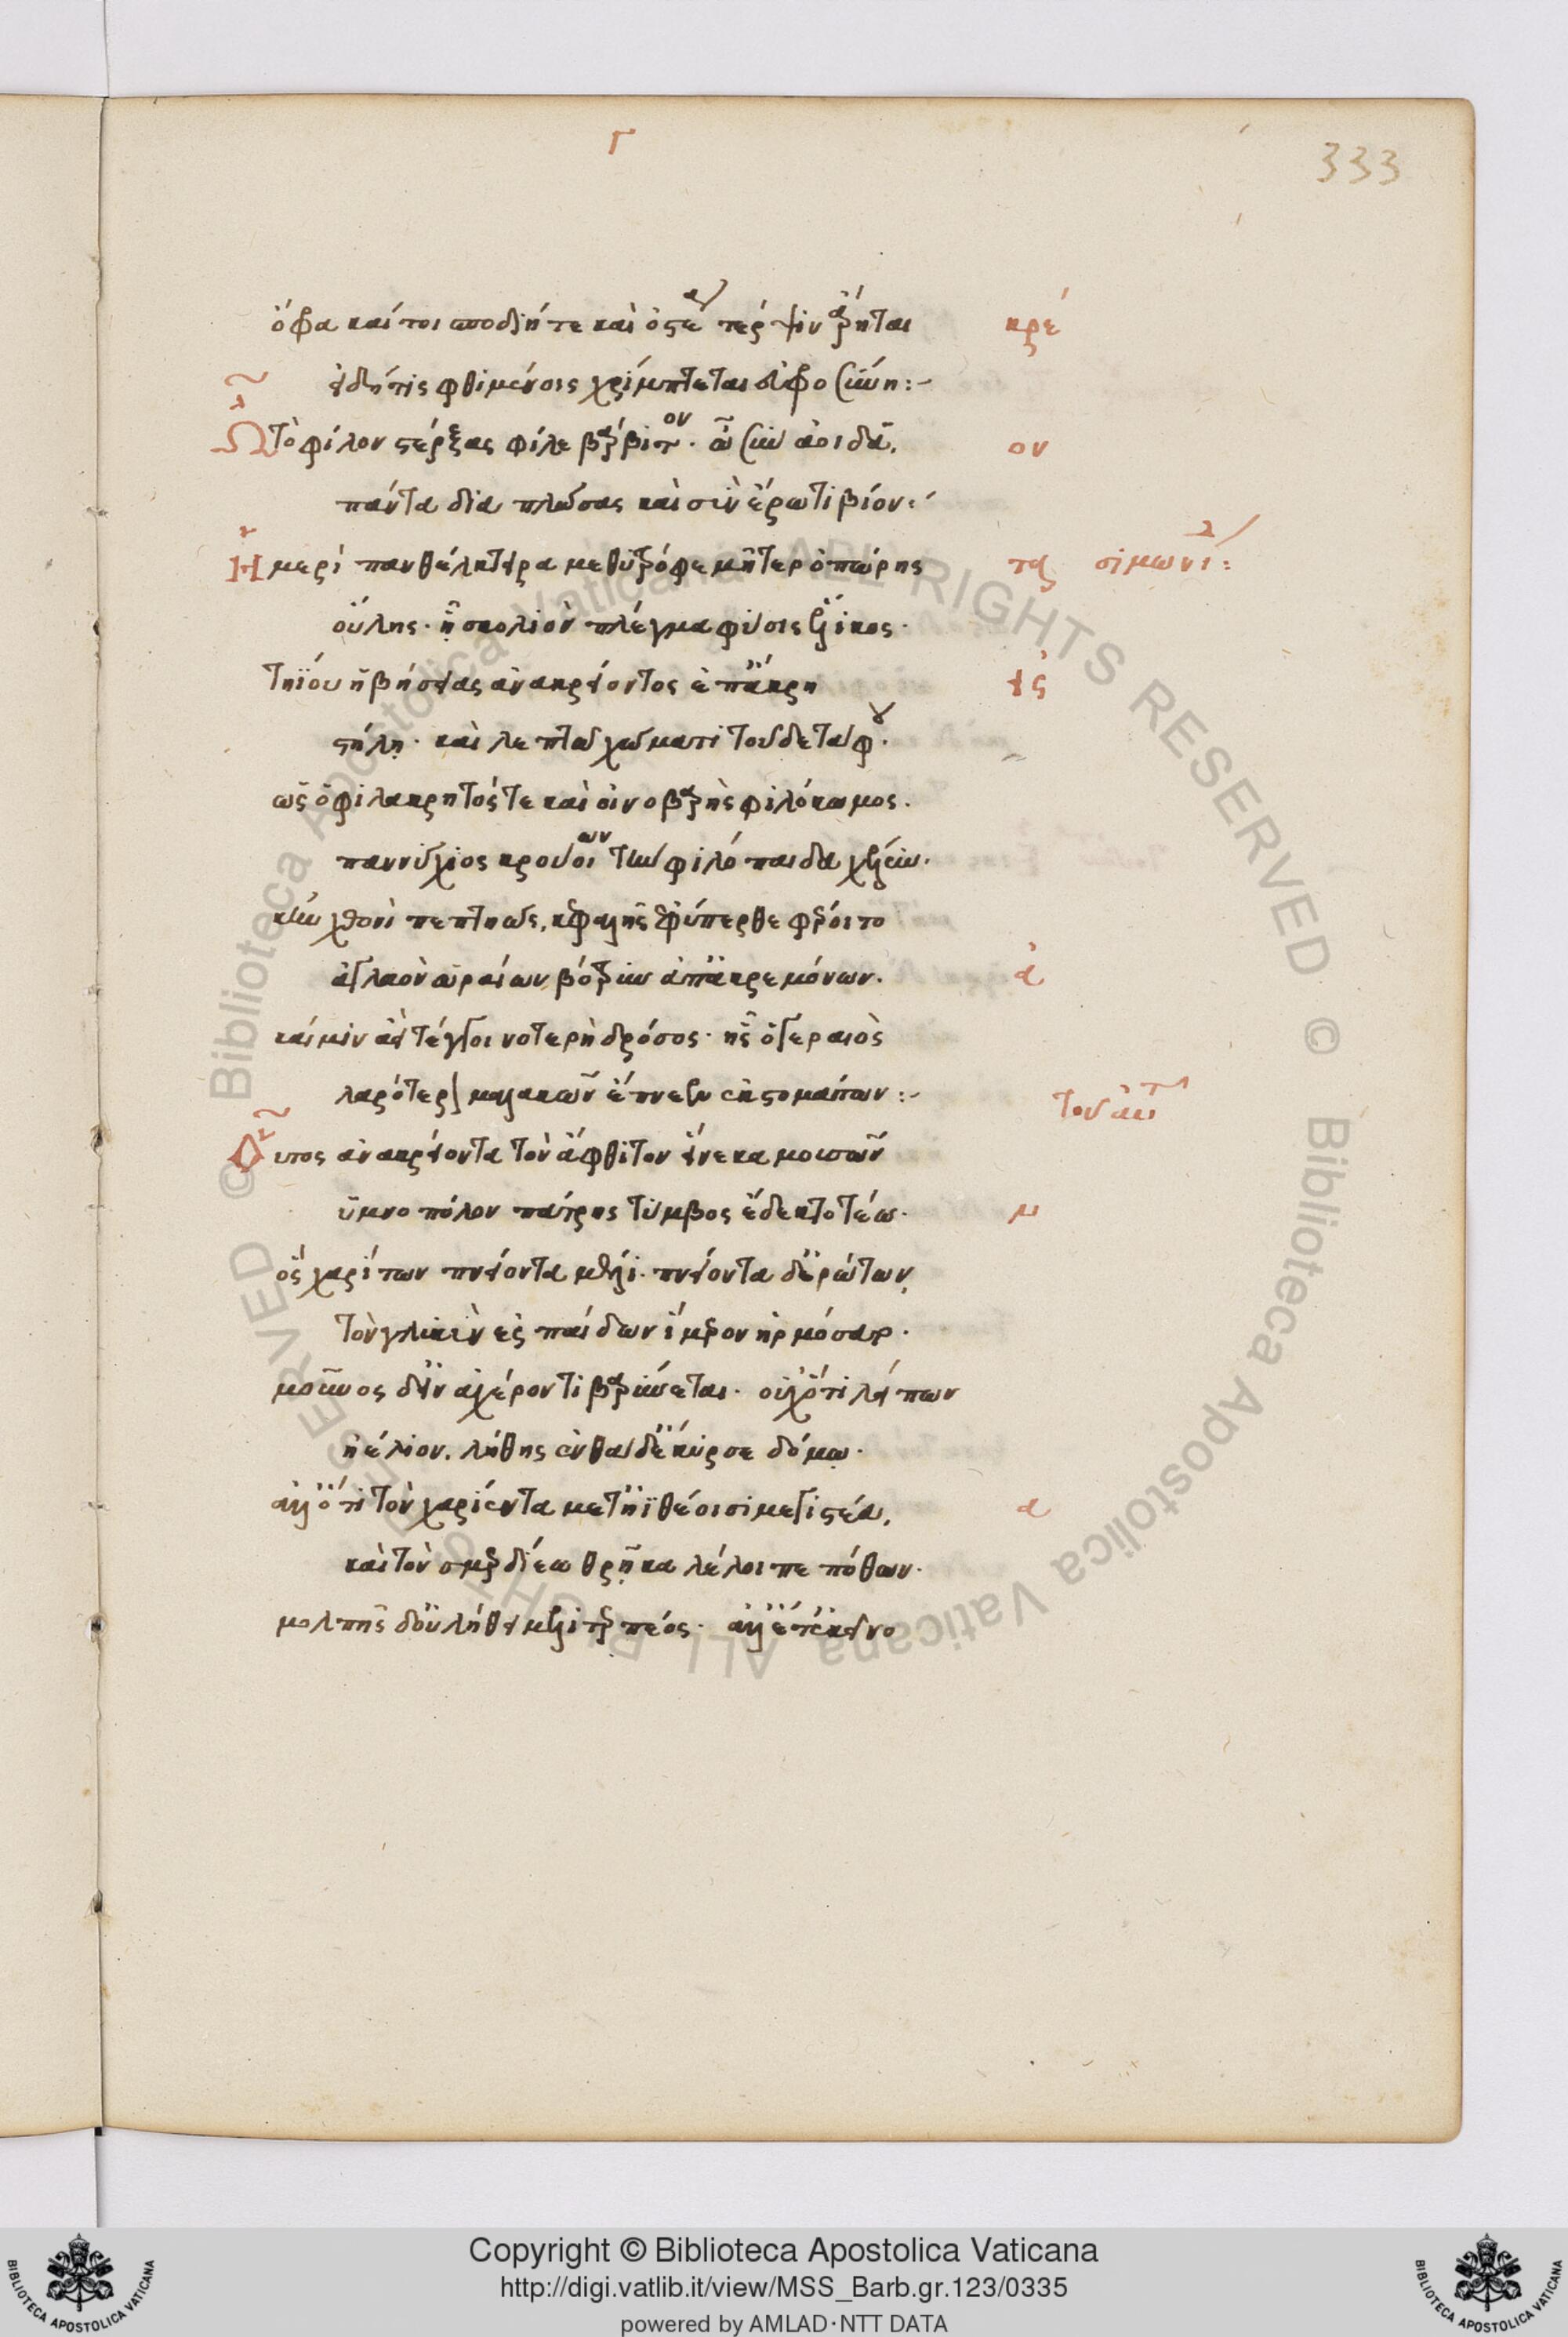 Γ
333
ὄφρα καί τοι σποδιή τε καὶ ὀστέα τέρψιν ἄρηται κρέ
εἰ δή τις φθιμένοις χρίμπτεται εὐφροσύνη:-
Ὦ τὸ φίλον στέρξας φίλε βάρβιτον. ὦ σὺν ἀοιδᾷ, ον
πάντα διαπλώσας καὶ σὺν ἔρωτι βίον:-
Ἡμερὶ πανθέλκτειρα μεθυτρόφε μῆτερ ὀπώρης τας σιμωνί:
οὔλης. ἣ σκολιὸν πλέγμα φύσις ἕλικος.
τηΐου ἡβήσειας ἀνακρείοντος ἐπ' ἄκρῃ εις
στήλῃ. καὶ λεπτῷ χώματι τοῦδε τάφου.
ὡς ὁ φιλάκρητός τε καὶ οἰνοβαρὴς φιλόκωμος.
παννύχιος κρούοι ων τὴν φιλόπαιδα χέλυν.
κἢν χθονὶ πεπτηώς, κεφαλῆς ἐφύπερθε φέροιτο
ἀγλαὸν ὡραίων βότρυν ἀπ' ἀκρεμόνων. ἀ
καί μιν ἀεὶ τέγγοι νοτερὴ δρόσος. ἧς ὁ γεραιὸς
λαρότερον μαλακῶν ἔπνεεν ἐκ στομάτων:-
Οὗτος ἀνακρείοντα τὸν ἄφθιτον εἵνεκα μουσῶν τοῦ αὐτ
ὑμνοπόλον πάτρης τύμβος ἔδεκτο τέω. μ
ὃς χαρίτων πνείοντα μέλη. πνείοντα δ' ἐρώτων,
τὸν γλυκὺν ἐς παίδων ἵμερον ἡρμόσατο.
μοῦνος δ' εἰν ἀχέροντι βαρύνεται. οὐχ ὅτι λείπων
ἠέλιον. λήθης ἐνθάδ' ἔκυρσε δόμων.
ἀλλ' ὅτι τὸν χαρίεντα μετ' ἠϊθέοισι μεγιστέα, α
καὶ τὸν σμερδίεω θρῇκα λέλοιπε πόθων.
μολπῆς δ' οὐ λήθει μελιτερπέος. ἀλλ' ἔτ' ἐκεῖνο
Copyright © Biblioteca Apostolica Vaticana
http://digi.vatlib.it/view/MSS_Barb.gr.123/0335
powered by AMLAD·NTT DATA
BIBLIOTECA APOSTOLICA VATICANA
BIBLIOTECA APOSTOLICA VATICANA
© Biblioteca Apostolica Vaticana ALL RIGHTS RESERVED © Biblioteca Apostolica Vaticana ALL RIGHTS RESERVED